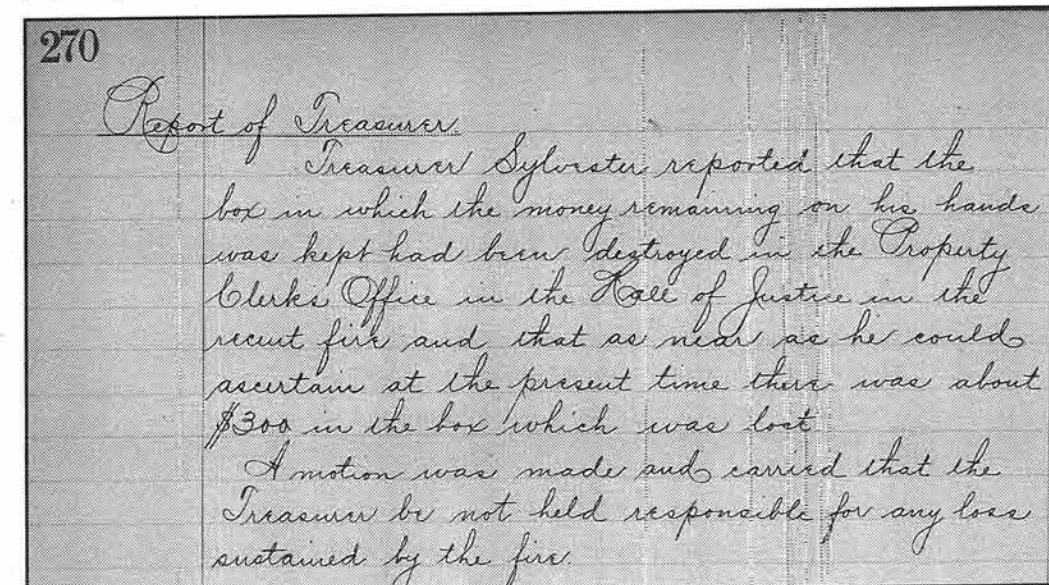 270
Report of Treasurer.
Treasurer Sylvester reported that the
box in which the money remaining on his hands
was kept had been deztroyed in the Property
Clerk's Office in the Hall of Justice in the
recent fire and that as near as he could
ascertain at the present time there was about
$300 in the box which was lost.
A motion was made and carried that the
Treasurer be not held responsible for any loss
sustained by the fire.